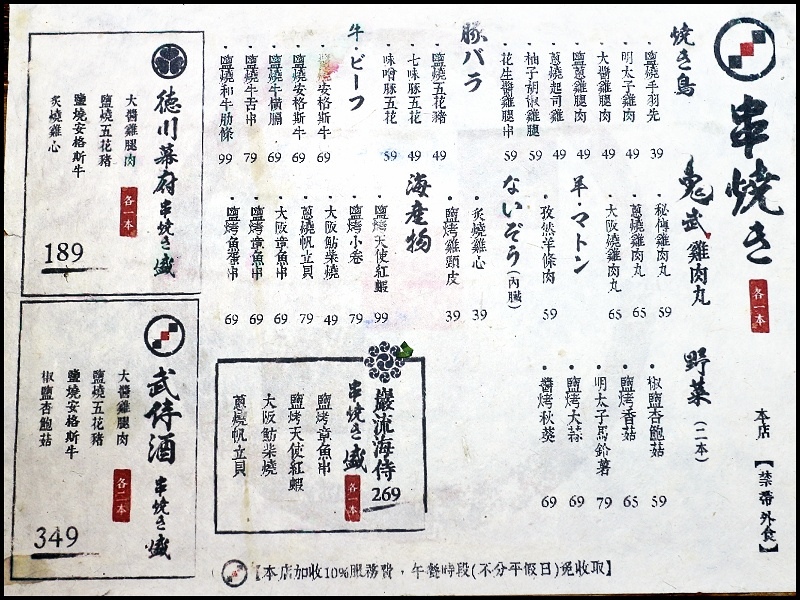 串焼き
各一本
本店【禁帶外食】
焼き鳥
・鹽燒手羽先 39
・明太子雞肉 49
・大醬雞腿肉 49
・鹽蔥雞腿肉 49
・蔥燒起司雞 49
・柚子胡椒雞腿 59
・花生醬雞腿串 59
豚バラ
・鹽燒五花豬 49
・七味豚五花 49
・味噌豚五花 59
牛・ビーフ
燒安格斯牛 69
・鹽燒安格斯牛 69
・鹽燒牛橫膈 69
・鹽燒牛舌串 79
・鹽燒和牛肋條 99
鬼武雞肉丸
・秘傳雞肉丸 59
・蔥燒雞肉丸 65
・大阪燒雞肉丸 65
羊・マトン
・孜然羊條肉 59
ないぞう(內臟)
・炙燒雞心 39
・鹽烤雞頸皮 39
海産物
・鹽烤天使紅蝦 99
・鹽烤小卷 79
・大阪魴柴燒 49
・蔥燒帆立貝 79
・大阪章魚串 69
・鹽烤章魚串 69
・鹽烤魚蛋串 69
野菜(二本)
・椒鹽杏鮑菇 59
・鹽烤香菇 65
・明太子馬鈴薯 79
・鹽烤大蒜 69
・醬烤秋葵 69
巖流海侍
串焼き盛
各一本
269
鹽烤章魚串
鹽烤天使紅蝦
大阪魴柴燒
蔥燒帆立貝
徳川幕府串焼き盛
大醬雞腿肉
鹽燒五花豬
鹽燒安格斯牛
炙燒雞心
各一本
189
武侍酒串焼き盛
大醬雞腿肉
鹽燒五花豬
鹽燒安格斯牛
椒鹽杏鮑菇
各二本
349
【本店加收10%服務費,午餐時段(不分平假日)免收取】